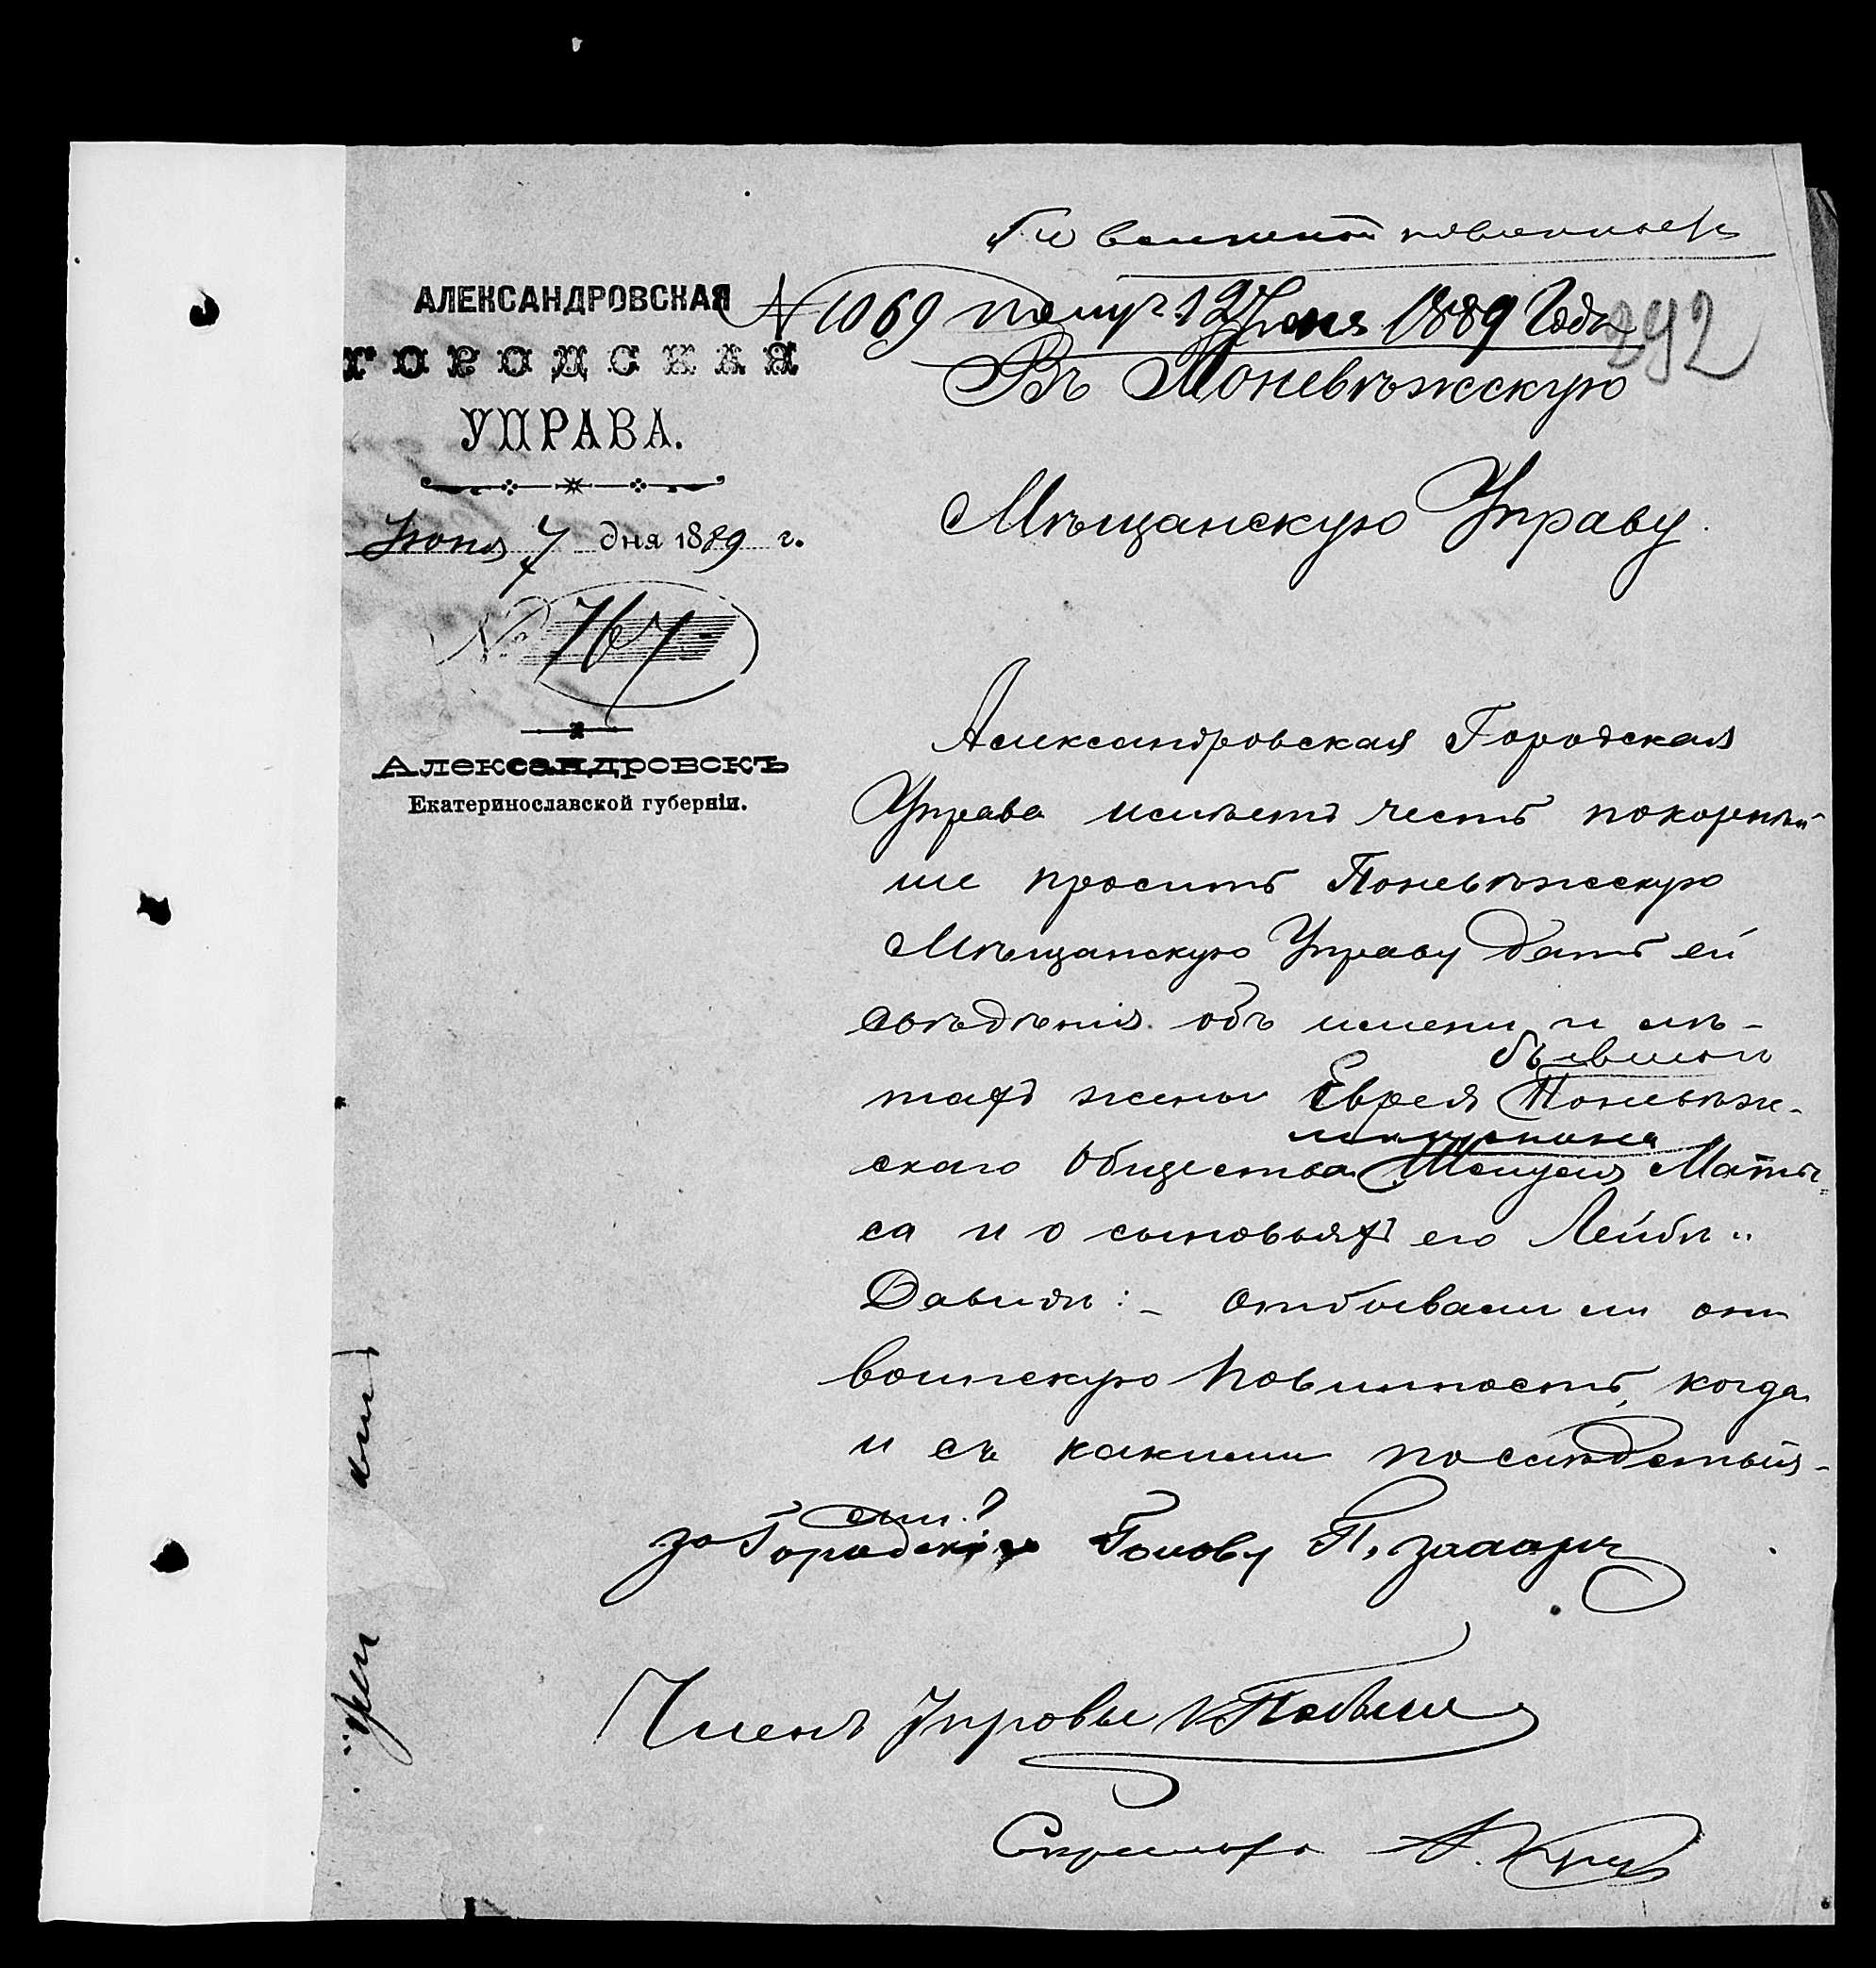 По воинской повинности
№ 1069 получ. 12 Іюня 1889 Года
292
АЛЕКСАНДРОВСКАЯ
ГОРОДСКАЯ
УПРАВА.
Іюня 7 дня 1889 г.
№ 767
Александровскъ
Екатеринославской губерніи.
Въ Поневѣжскую
Мѣщанскую Управу.
Александровская Городская
Управа имѣетъ честь покорнѣй
ше просить Поневѣжскую
Мѣщанскую Управу дать ей
свѣдѣнія объ имени и лѣ-
бывшаго
тахъ жены Еврея Поневѣж-
скаго Общества Шмуеля
са и о сыновьяхъ его Лейбѣ
Давидѣ:- отбывали ли они
воинскую повинность, когда
и съ какими послѣдствія-
ми?
за Городскаго Голову П.
Членъ Управы
Секретарь А.